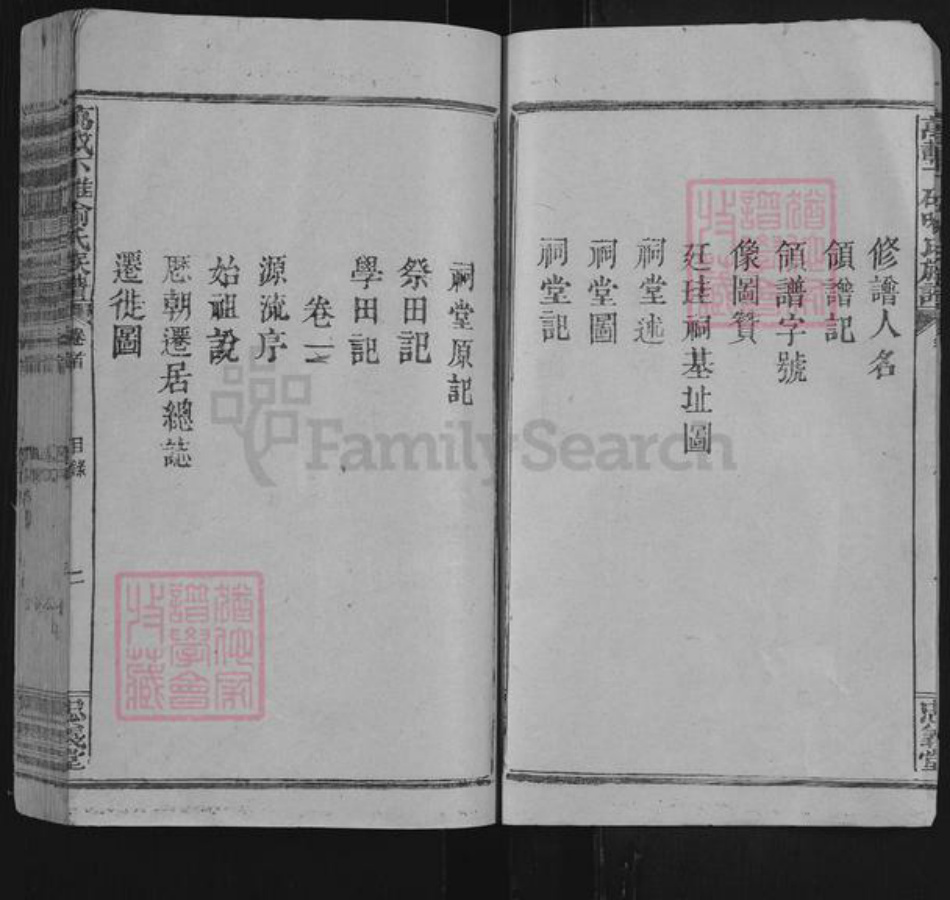 修譜人名
領譜記
領譜字號
像圖贊
廷珪祠基址圖
祠堂述
祠堂圖
祠堂記
祠堂原記
祭田記
學田記
卷一
源流序
始祖說
歷朝遷居總誌
遷徙圖
卷首
目錄
二
忠義堂
忠義堂
譜學會
收藏
FamilySearch